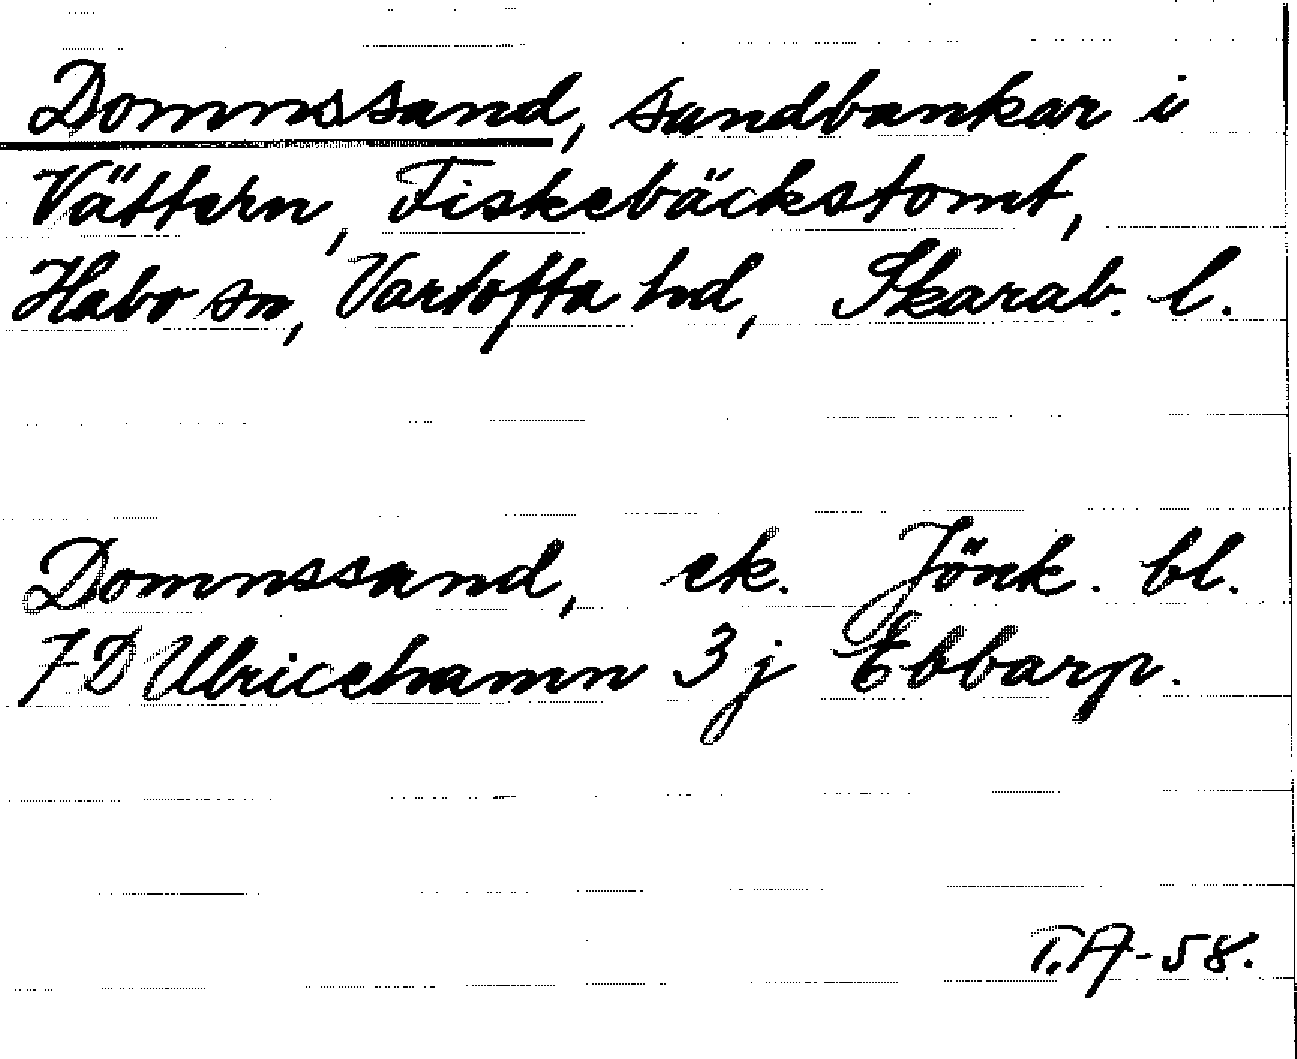 Domnssand, sandbankar i
Vättern, Fiskebäckstomt,
Habo sn, Vartofta hd, Skarab. l.
Domnssand, ek. Jönk. bl.
7 D Ulricehamn 3 j Ebbarp.
T.A-58.